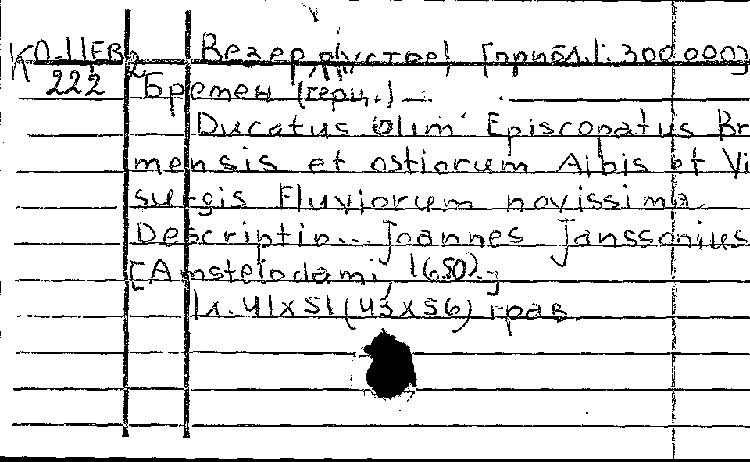 КО-11 ЕВ2 Везер, устье [прибл. 1:300000]
222 Бремен (герц.)
Ducatus olim Episcopatus Bre
mensis et ostiorum Albis et Vi
surgis Fluviorum novissima
Descriptio... Joannes Janssonius
[Amstelodami, 1650.]
1 л. 41x51 (43x56) грав.